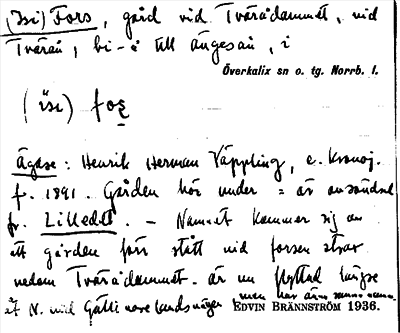 (Isi) Fors, gård vid Tvärådammet, vid
Tvärån, bi-å till ängesån, i
Överkalix sn o. tg. Norrb. l.
(isi) fos
Ägare: Henrik Herman Väppling, e. Kronoj.
f. 1891. Gården hör under = är avsöndrad
fr. Lilledet. – Namnet kommer sig av
att gården förr stått vid forsen strax
nedom Tvärådammet. är nu flyttad längre
åt N. vid Gällivare landsvägen men har ännu samma namn.
EDVIN BRÄNNSTRÖM 1936.